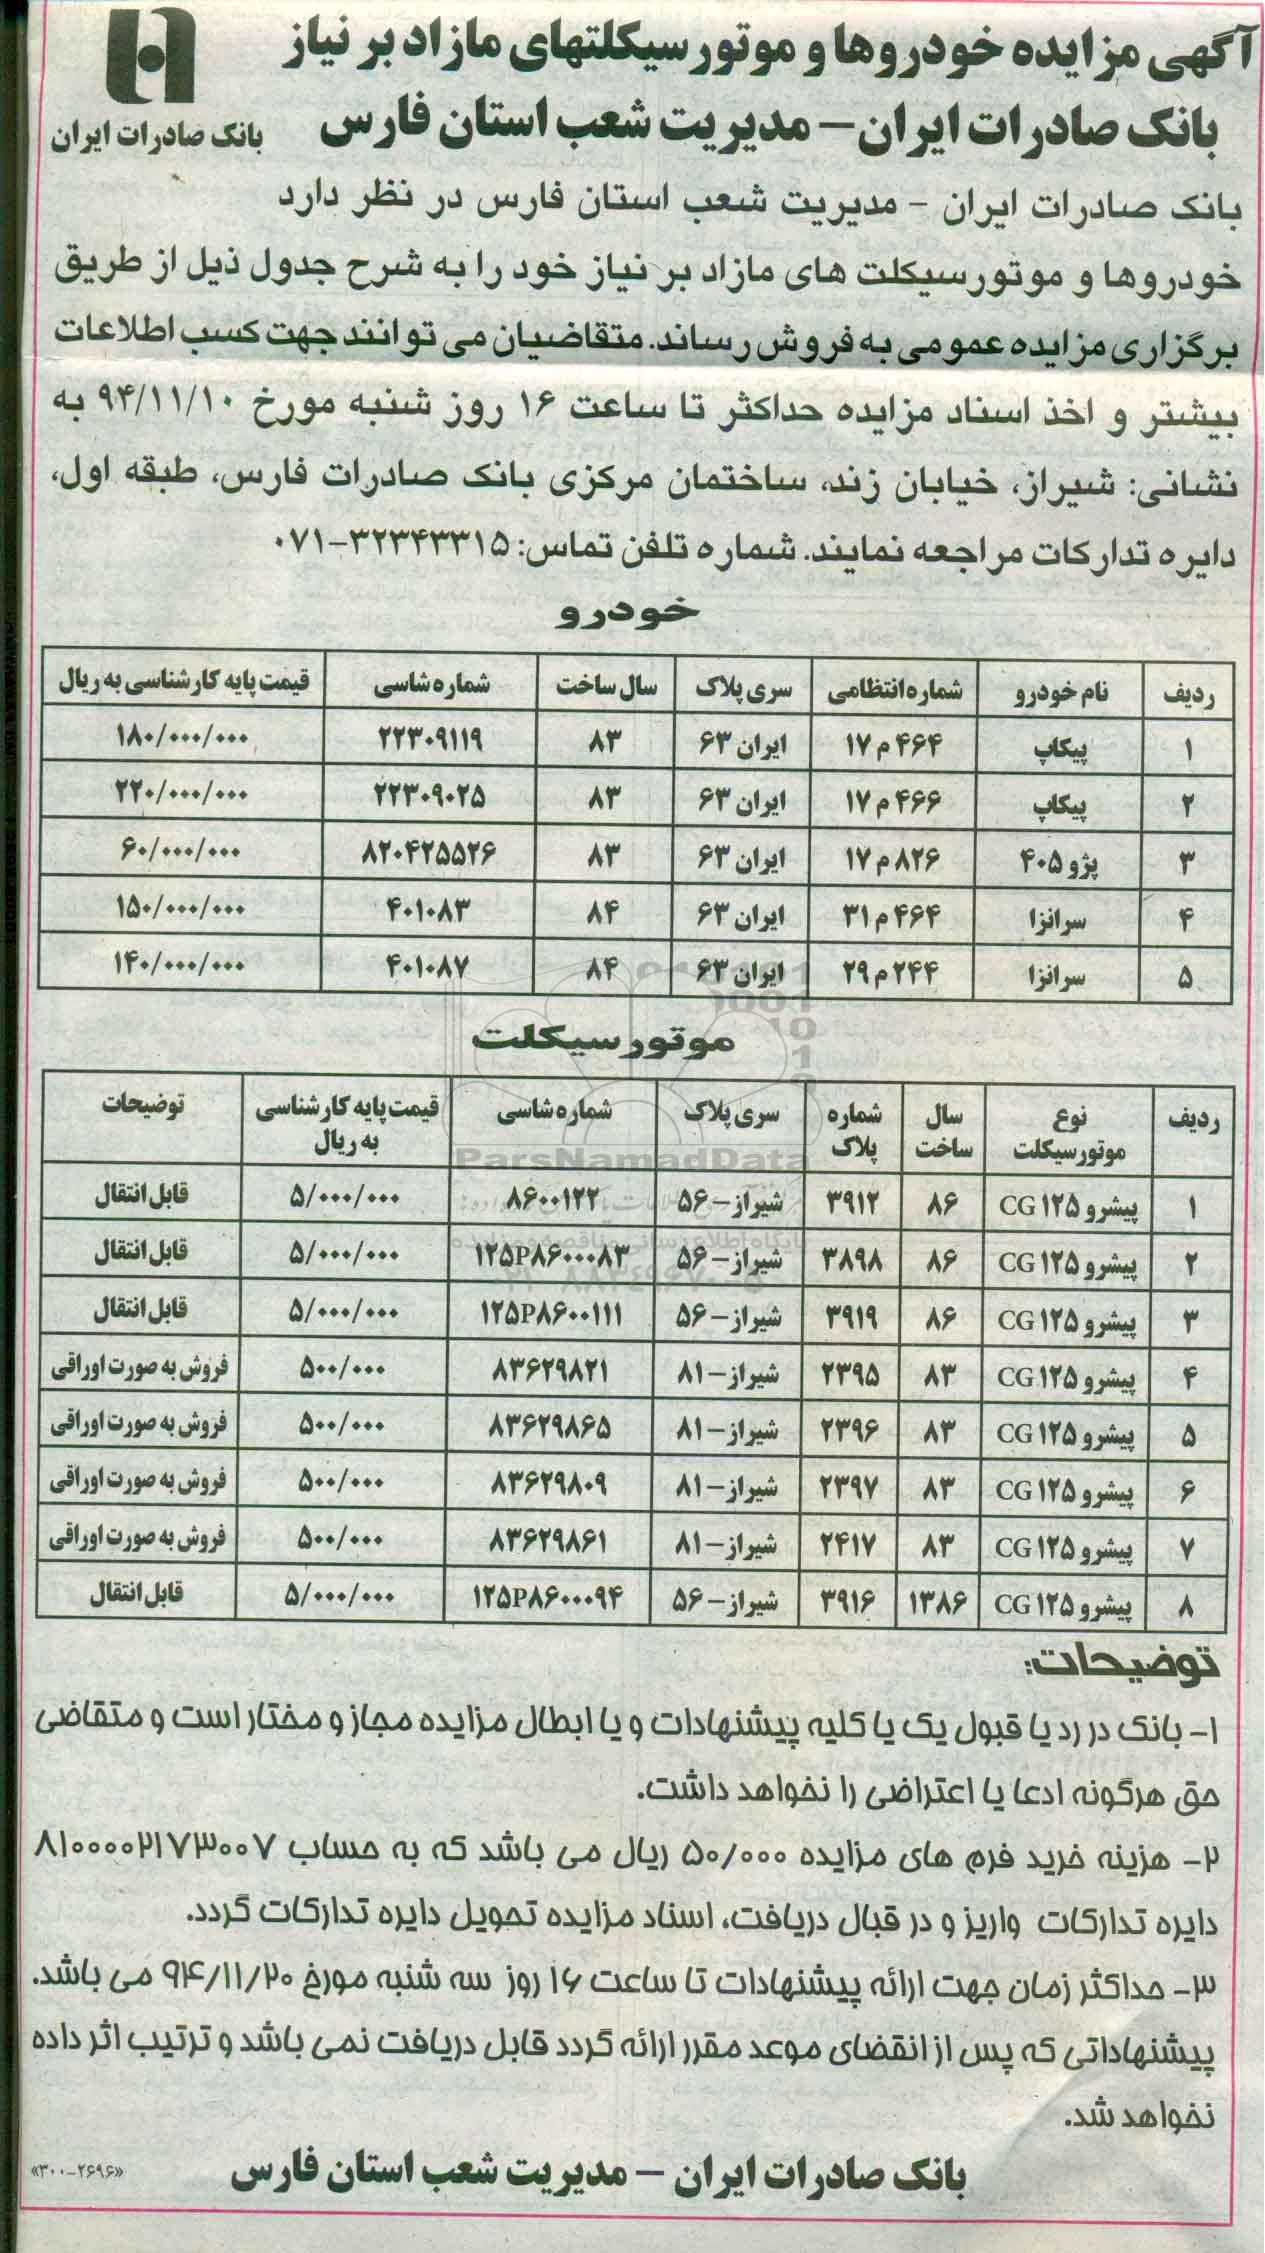 آگهی مزایده خودروها و موتورسیکلتهای مازاد بر نیاز
بانک صادرات ایران – مدیریت شعب استان فارس
بانک صادرات ایران
بانک صادرات ایران - مدیریت شعب استان فارس در نظر دارد
خودروها و موتورسیکلت های مازاد بر نیاز خود را به شرح جدول ذیل از طریق
برگزاری مزایده عمومی به فروش رساند. متقاضیان می توانند جهت کسب اطلاعات
بیشتر و اخذ اسناد مزایده حداکثر تا ساعت ۱۶ روز شنبه مورخ ۹۴/۱۱/۱۰ به
نشانی: شیراز، خیابان زند، ساختمان مرکزی بانک صادرات فارس، طبقه اول،
دایره تدارکات مراجعه نمایند. شماره تلفن تماس: ۳۲۳۴۳۳۱۵-۰۷۱
خودرو
ردیف نام خودرو شماره انتظامی سری پلاک سال ساخت شماره شاسی قیمت پایه کارشناسی به ریال
۱ پیکاپ ۴۶۴ م ۱۷ ایران ۶۳ ۸۳ ۲۲۳۰۹۱۱۹ ۱۸۰/۰۰۰/۰۰۰
۲ پیکاپ ۴۶۶ م ۱۷ ایران ۶۳ ۸۳ ۲۲۳۰۹۰۲۵ ۲۲۰/۰۰۰/۰۰۰
۳ پژو ۴۰۵ ۸۲۶ م ۱۷ ایران ۶۳ ۸۳ ۸۲۰۴۲۵۵۲۶ ۶۰/۰۰۰/۰۰۰
۴ سرانزا ۴۶۴ م ۳۱ ایران ۶۳ ۸۴ ۴۰۱۰۸۳ ۱۵۰/۰۰۰/۰۰۰
۵ سرانزا ۲۴۴ م ۲۹ ایران ۶۳ ۸۴ ۴۰۱۰۸۷ ۱۴۰/۰۰۰/۰۰۰
موتورسیکلت
ردیف نوع موتورسیکلت سال ساخت شماره پلاک سری پلاک شماره شاسی قیمت پایه کارشناسی به ریال توضیحات
۱ پیشرو CG ۱۲۵ ۸۶ ۳۹۱۲ شیراز – ۵۶ ۸۶۰۰۱۲۲ ۵/۰۰۰/۰۰۰ قابل انتقال
۲ پیشرو CG ۱۲۵ ۸۶ ۳۸۹۸ شیراز – ۵۶ ۱۲۵P۸۶۰۰۰۸۳ ۵/۰۰۰/۰۰۰ قابل انتقال
۳ پیشرو CG ۱۲۵ ۸۶ ۳۹۱۹ شیراز – ۵۶ ۱۲۵P۸۶۰۰۱۱۱ ۵/۰۰۰/۰۰۰ قابل انتقال
۴ پیشرو CG ۱۲۵ ۸۳ ۲۳۹۵ شیراز – ۸۱ ۸۳۶۲۹۸۲۱ ۵۰۰/۰۰۰ فروش به صورت اوراقی
۵ پیشرو CG ۱۲۵ ۸۳ ۲۳۹۶ شیراز – ۸۱ ۸۳۶۲۹۸۶۵ ۵۰۰/۰۰۰ فروش به صورت اوراقی
۶ پیشرو CG ۱۲۵ ۸۳ ۲۳۹۷ شیراز – ۸۱ ۸۳۶۲۹۸۰۹ ۵۰۰/۰۰۰ فروش به صورت اوراقی
۷ پیشرو CG ۱۲۵ ۸۳ ۲۴۱۷ شیراز – ۸۱ ۸۳۶۲۹۸۶۱ ۵۰۰/۰۰۰ فروش به صورت اوراقی
۸ پیشرو CG ۱۲۵ ۱۳۸۶ ۳۹۱۶ شیراز – ۵۶ ۱۲۵P۸۶۰۰۰۹۴ ۵/۰۰۰/۰۰۰ قابل انتقال
ParsNamadData
پایگاه اطلاع رسانی مناقصه و مزایده
توضیحات:
۱- بانک در رد یا قبول یک یا کلیه پیشنهادات و یا ابطال مزایده مجاز و مختار است و متقاضی
حق هرگونه ادعا یا اعتراضی را نخواهد داشت.
۲- هزینه خرید فرم های مزایده ۵۰/۰۰۰ ریال می باشد که به حساب ۸۱۰۰۰۰۲۱۷۳۰۰۷
دایره تدارکات واریز و در قبال دریافت، اسناد مزایده تحویل دایره تدارکات گردد.
۳- حداکثر زمان جهت ارائه پیشنهادات تا ساعت ۱۶ روز سه شنبه مورخ ۹۴/۱۱/۲۰ می باشد.
پیشنهاداتی که پس از انقضای موعد مقرر ارائه گردد قابل دریافت نمی باشد و ترتیب اثر داده
نخواهد شد.
بانک صادرات ایران – مدیریت شعب استان فارس
«۳۰۰-۲۶۹۶»